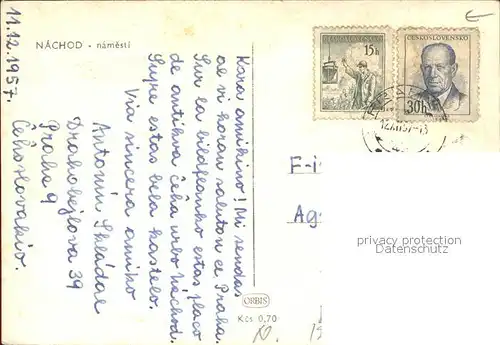 11.12.1957.
NÁCHOD - náměstí
Kara amikino! Mi sendas
al vi koran saluton el Praha.
Sur la bildflanko estas placo
de antikva ĉeĥa urbo Náchod.
Supre estas bela kastelo.
Via sincera amiko
Antonín Skládal
Drahobejlova 39
Praha 9
Ĉeĥoslovakio.
ORBIS
Kčs 0,70
15h
ČESKOSLOVENSKO
ČESKOSLOVENSKO
30h
12.XII.57-13
F-i
Ag
privacy protection
Datenschutz